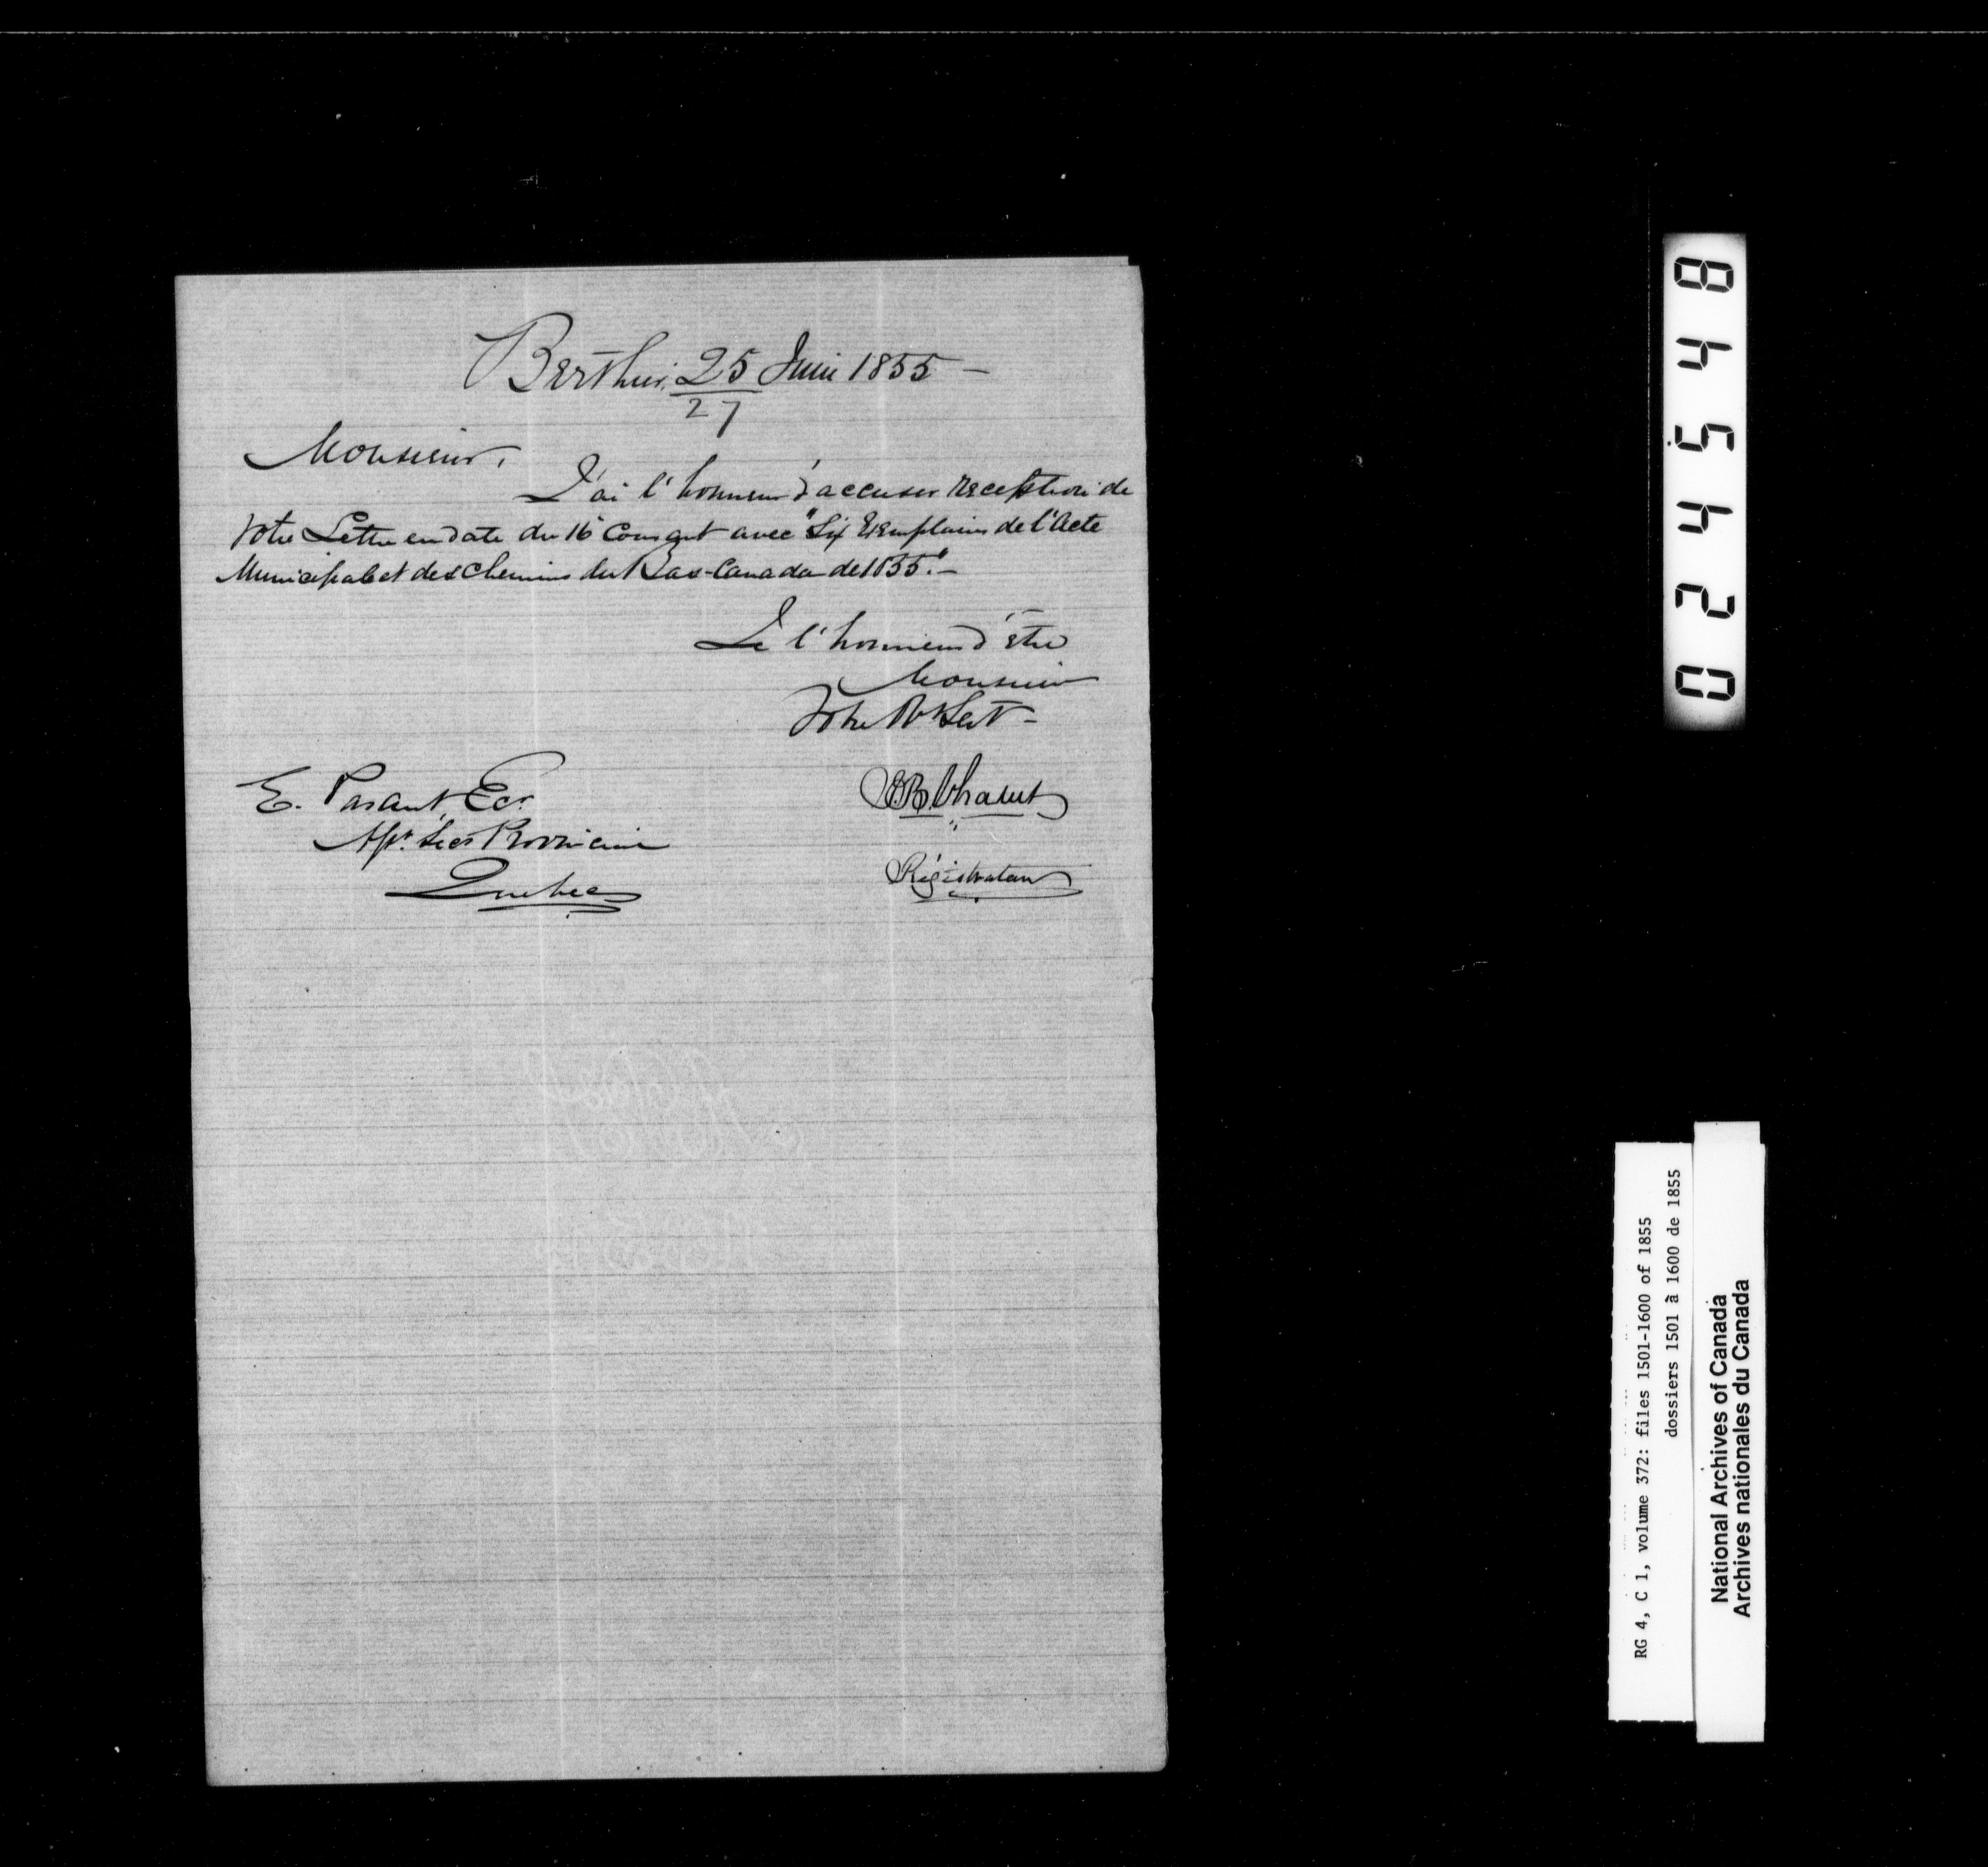 Berthier, 25 Juin 1855 —
27
Monsieur,
J'ai l'honneur d'accuser reception de
votre Lettre en date du 16 Courant avec "Six Exemplaires de l'Acte
Municipal et des Chemins du Bas-Canada de 1855." —
l'honneur d'être
Monsieur
Votre
E. Parant, Ecr
Provincial
Quebec
Régistrateur
024548
RG 4, C 1, volume 372: files 1501-1600 of 1855
dossiers 1501 à 1600 de 1855
National Archives of Canada
Archives nationales du Canada